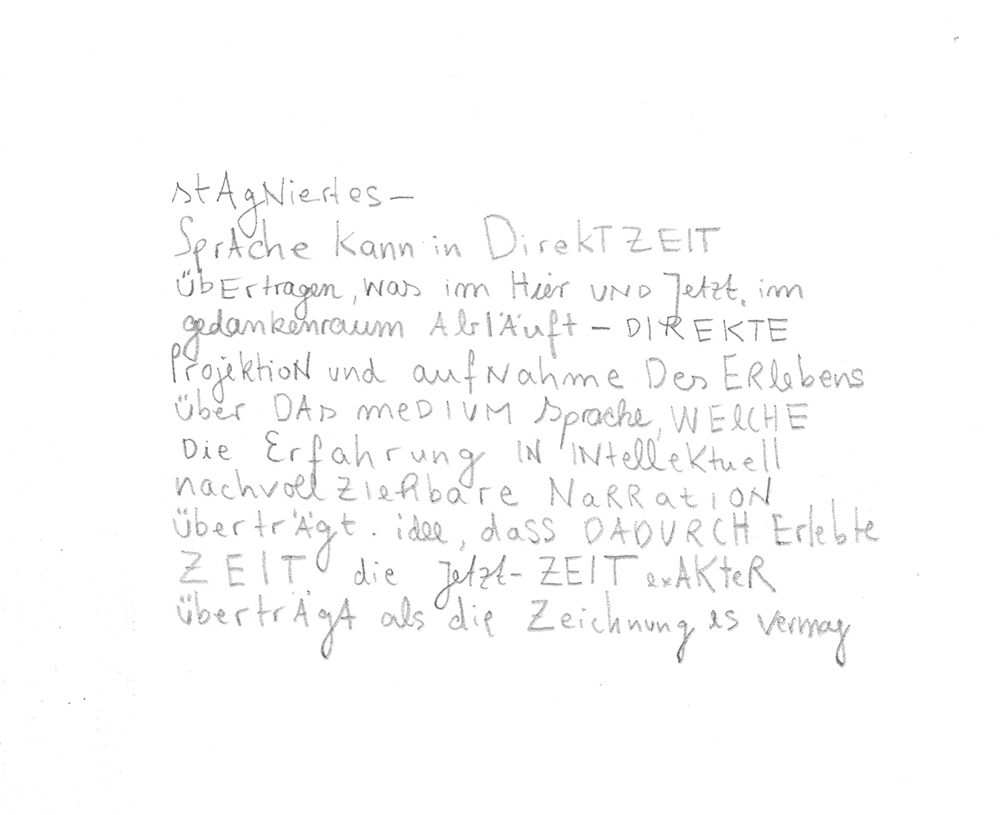 stAgNiertes –
SprAche kann in DirekT ZEIT
übErtragen, was im Hier UND Jetzt, im
gedankenraum AblÄuft – DIREKTE
ProjektioN und aufNahme Des ERlebens
über DAs meDIUM sprache, WElCHE
Die Erfahrung IN INtellektuell
nachvollziehbare NaRRatION
übertrÄgt. idee, dass DADURCH Erlebte
ZEIT die jetzt-ZEIT exAKteR
übertrÄgt als die Zeichnung es vermag